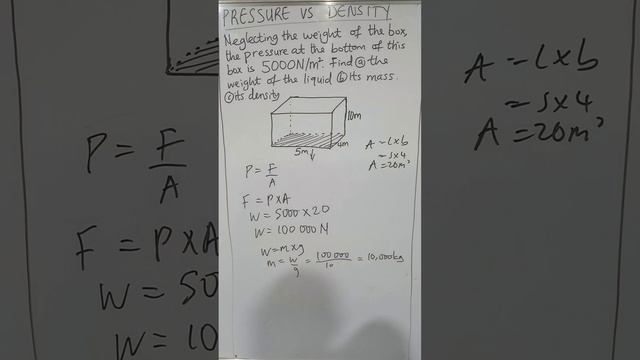 PRESSURE VS DENSITY
Neglecting the weight of the box,
the pressure at the bottom of this
box is 5000N/m². Find ⓐ the
weight of the liquid ⓑ its mass.
ⓒ its density
10m
4m
5m
A = L x b
= 5 x 4
A = 20m²
P = F/A
F = P x A
W = 5000 x 20
W = 100 000 N
W = m x g
m = W/g = 100 000/10 = 10,000kg
P = F/A
F = P x A
W = 50
W = 10
A = L x b
= 5 x 4
A = 20m²